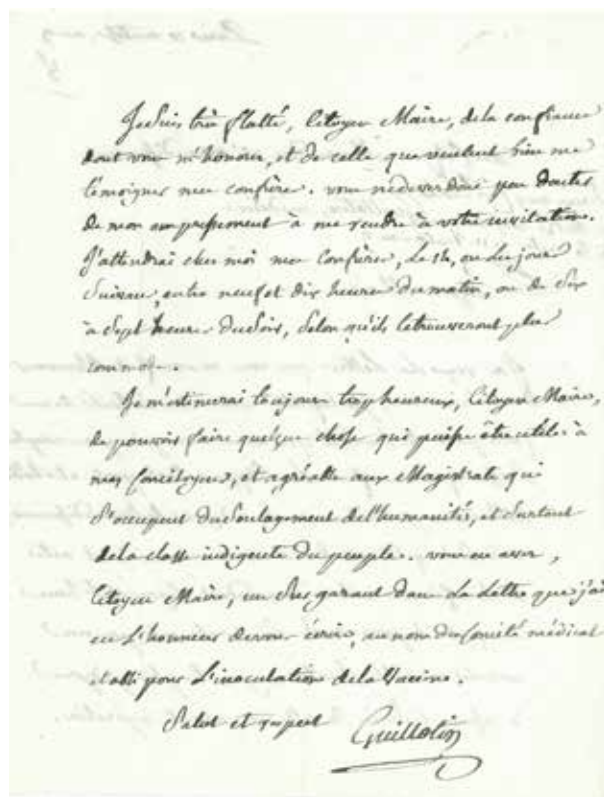 Je suis très flatté, Citoyen Maire, de la confiance
dont vous m'honorez, et de celle que veulent bien me
témoigner mes confrères. vous ne devez donc pas douter
de mon empressement à me rendre à votre invitation.
J'attendrai chez moi mes Confrères, le 14, ou les jours
Suivans, entre neuf et dix heures du matin, ou de Six
à Sept heures du Soir, Selon qu'ils le trouveront plus
commode.
Je m'estimerai toujours trop heureux, Citoyen Maire,
de pouvoir faire quelque chose qui puisse être utile à
mes Concitoyens, et agréable aux Magistrats qui
S'occupent du Soulagement de l'humanité, et Surtout
de la classe indigente du peuple. vous en avez,
Citoyen Maire, un Sûr garant dans La Lettre que j'ai
eu L'honneur de vous écrire, au nom du Comité médical
établi pour L'inoculation de la Vaccine.
Salut et respect
Guillotin